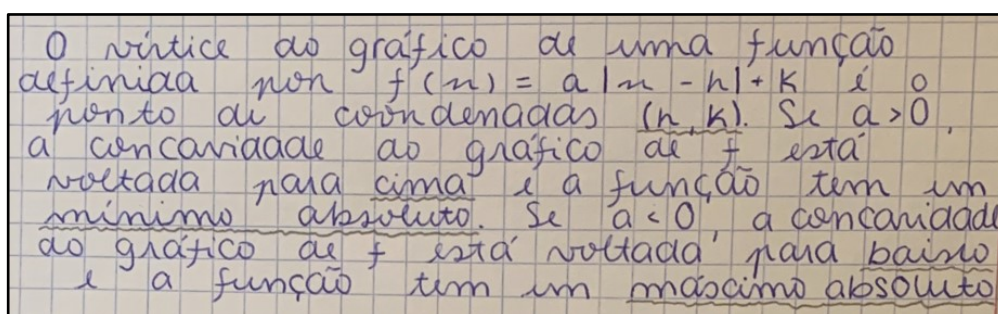 O vértice do gráfico de uma função
definida por f(x) = a|x - h| + k é o
ponto de coordenadas (h, k). Se a > 0,
a concavidade do gráfico de f está
voltada para cima e a função tem um
mínimo absoluto. Se a < 0, a concavidade
do gráfico de f está voltada para baixo
e a função tem um máximo absoluto